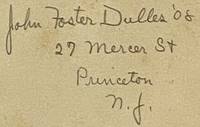 John Foster Dulles '08
27 Mercer St
Princeton
N. J.